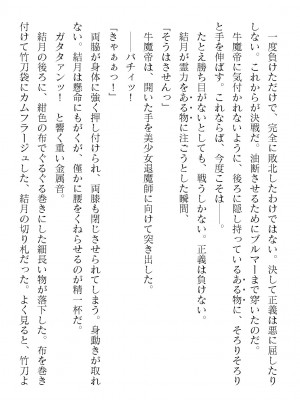 一度負けただけで、完全に敗北したわけではない。決して正義は悪に屈したり
しない。これからが決戦だ。油断させるためにブルマーまで穿いたのだ。
牛魔帝に気付かれないように、後ろに隠し持っているある物に、そろりそろり
と手を伸ばす。これならば、今度こそは――。
たとえ勝ち目がないとしても、戦うしかない。正義は負けない。
結月が霊力をある物に注ごうとした瞬間、
『そうはさせんっ』
牛魔帝は、開いた手を美少女退魔師に向けて突き出した。
――バチィッ！
「きゃぁぁっ！」
両脇が身体に強く押し付けられ、両膝も閉じさせられてしまう。身動きが取れ
ない。結月は懸命にもがくが、僅かに腰をくねらせるのが精一杯だ。
ガタタァンッ！　と響く重い金属音。
結月の後ろに、紺色の布でぐるぐる巻きにした細長い物が落下した。布を巻き
付けて竹刀袋にカムフラージュした、結月の切り札だった。よく見ると、竹刀よ